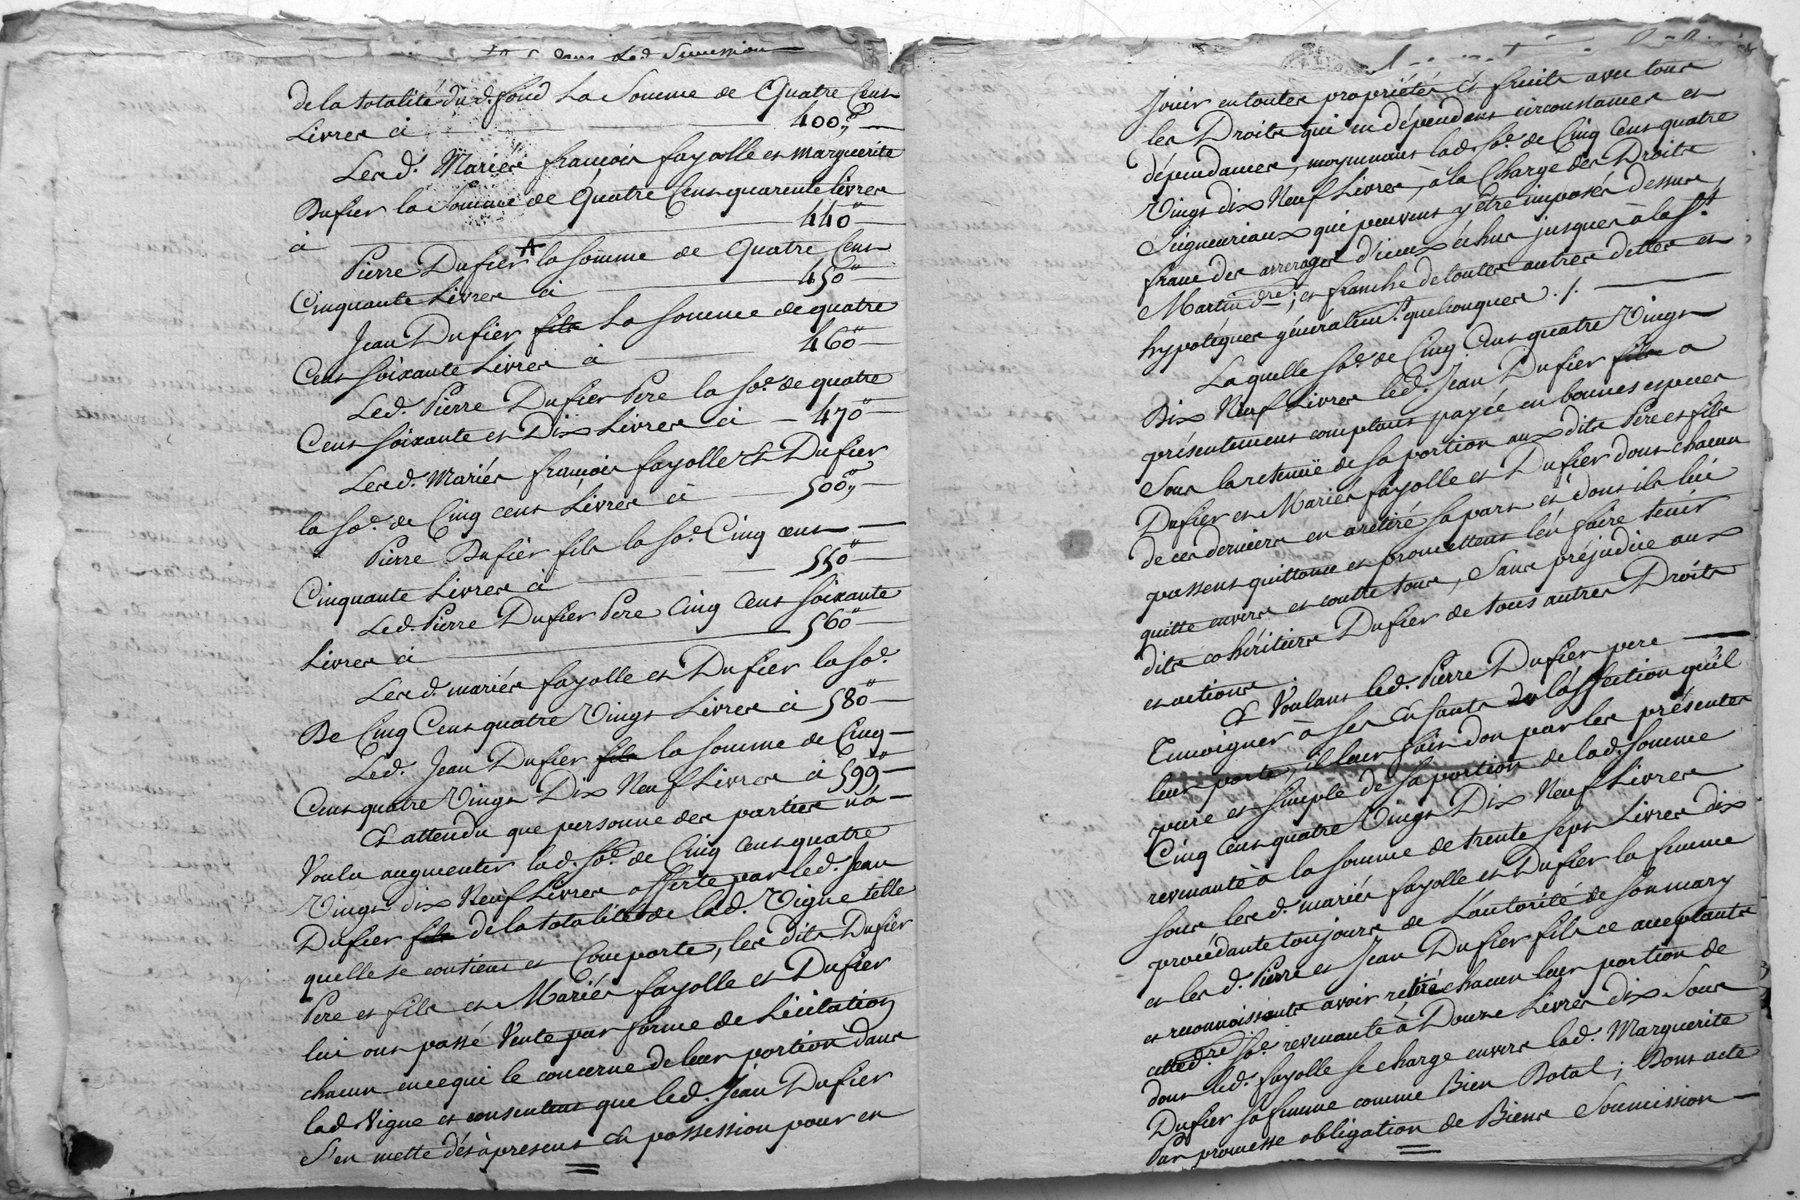 dans lad. Succession
de la totalité du d. fond La Somme de Quatre Cent
Livres ci 400"
Lesd. Mariés françois fayolle et Marguerite
Dufier la Somme de Quatre Cent quarente livres
ci 440"
Pierre Dufier A la somme de Quatre Cent
Cinquante Livres ci 450"
Jean Dufier fils La somme de quatre
Cent soixante Livres ci 460"
Led. Pierre Dufier Pere la So.e de quatre
Cent soixante et Dix Livres ci 470"
Lesd. Mariés françois fayolle et Dufier
la So.e de Cinq cent Livres ci 500"
Pierre Dufier fils la So.e Cinq cent
Cinquante Livres ci 550"
Led. Pierre Dufier Pere Cinq Cent soixante
Livres ci 560"
Lesd. mariés fayolle et Dufier la So.e
De Cinq Cent quatre Vingt Livres ci 580"
Led. Jean Dufier fils la somme de Cinq
Cent quatre Vingt Dix Neuf Livres ci 599"
Et attendu que personne des parties n'a
Voulu augmenter lad. So.e de Cinq cent quatre
Vingt dix Neuf Livres offerte par led. Jean
Dufier fils de la totalité de lad. Vigne telle
quelle se contient et Comporte, les dits Dufier
Pere et fils et Mariés fayolle et Dufier
lui ont passé Vente par forme de Licitation
chacun en ce qui le concerne de leur portion dans
lad Vigne et consentent que led. Jean Dufier
s'en mette dès à present en possession pour en
Jouir en toutes propriétés et fruits avec tous
les Droits qui en dépendent circonstances et
dépendances, moyennant lad. So.e de Cinq Cent quatre
Vingt dix Neuf Livres, à la Charge des Droits
Seigneuriaux qui peuvent y être imposés dessus,
franc des arrerages d'iceux échus jusques à la St
Martin d.re; et franche de toutes autres dettes et
hypotéques généralem.t quelconques ./.
La quelle So.e de Cinq Cent quatre Vingt
Dix Neuf Livres led. Jean Dufier fils a
présentement comptant payée en bonnes especes
Sous la retenüe de sa portion aux dits Pere et fils
Dufier et Mariés fayolle et Dufier dont chacun
de ces derniers en a retiré sa part et dont ils lui
passent quittance et promettent l'en faire tenir
quitte envers et contre tous, Sans préjudice aux
dits cohéritiers Dufier de tous autres Droits
et actions.
Et Voulant led. Pierre Dufier pere
Temoigner à ses Enfants de l'affection qu'il
leur porte, il leur fait don par les présentes
pure et simple de sa portion de lad. somme
Cinq Cent quatre Vingt Dix Neuf Livres
revenante à la somme de trente sept Livres dix
sous les d. mariés fayolle et Dufier la femme
procédante toujours de L'autorité de son mary
et les d. Pierre et Jean Dufier fils ce acceptants
et reconnoissants avoir retiré chacun leur portion de
cetted. d.re So.e revenante à Douze Livres dix Sous
dont led. fayolle se charge envers lad. Marguerite
Dufier sa femme comme Bien Dotal; Dont acte
Par promesse obligation de Biens Soumission